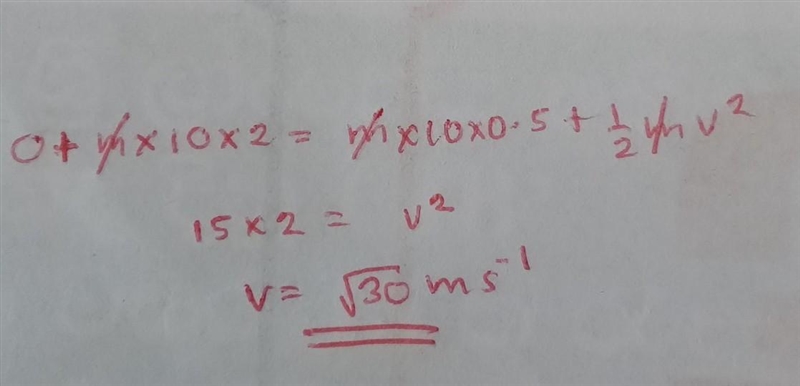 0 + m × 10 × 2 = m × 10 × 0.5 + 1/2 m v²
15 × 2 = v²
v = √30 m s⁻¹